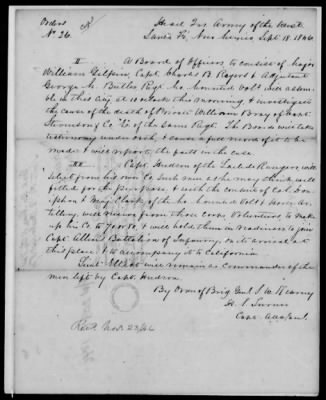 Orders
No. 26.
Head Qrs Army of the West
Santa Fé, New Mexico, Sept 18. 1846
II A Board of Officers to consist of Major
William Gilpin, Capt. Charles B. Rogers & Adjutant
George M. Butler Regt Mo. mounted Vols will assem-
ble in this City at 10 o'clk this morning & investigate
the cause of the death of Private William Bray of Capt.
Co "E" of the same Regt. The Board will take
testimony under oath & cause a fair record of it to be
made & will report the facts in the case
III Capt. Hudson of the Laclede Rangers will
select from his own Co such men as he may think well
fitted for the purpose, & with the consent of Col. Don-
iphan & Maj. Clark of the Mo. mounted Vols & Horse Ar-
tillery, will receive from those corps Volunteers to make
up his Co to & will hold them in readiness to join
Capt Allen's Battalion of Infantry, on its arrival at
this place, & to accompany it to California
Lieut Elliott will remain as Commander of the
men left by Capt. Hudson.
By Order of Brig Genl S. W. Kearny
H. S. Turner
Capt.
Recd Nov. 23/46